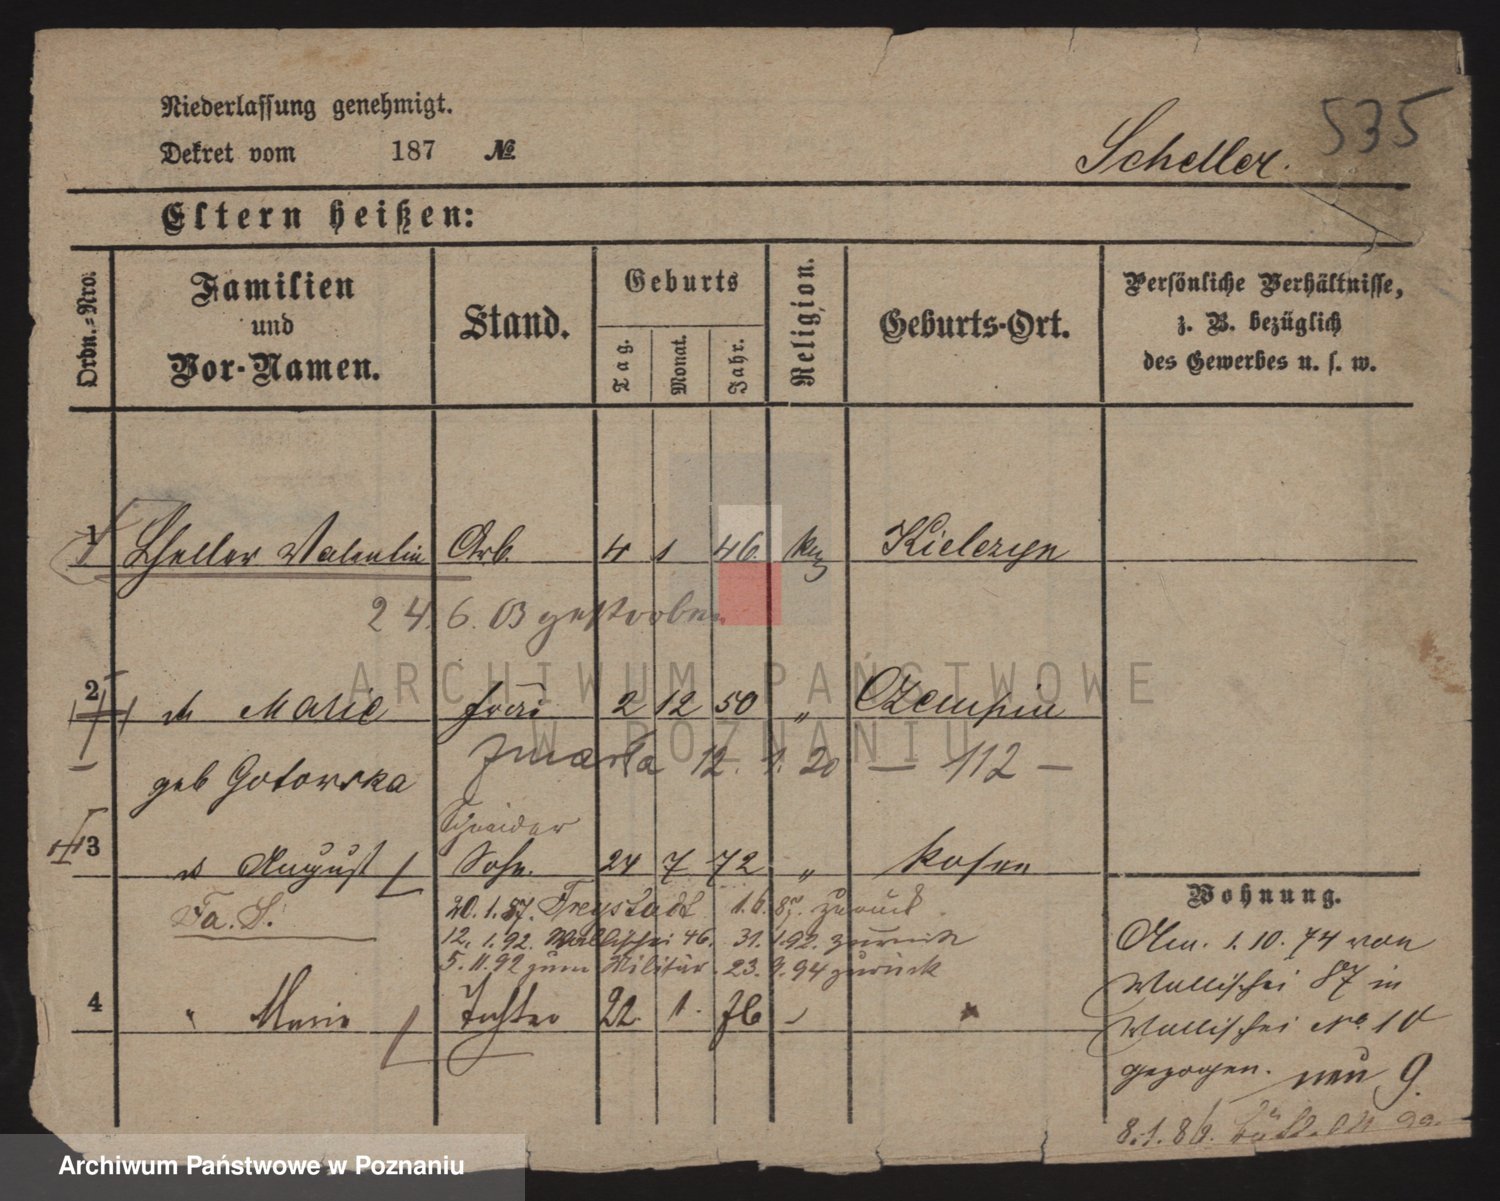 Niederlassung genehmigt.
535
Dekret vom 187 №
Scheller.
Eltern heißen:
Ordn.-Nro.
Familien
und
Vor-Namen.
Stand.
Geburts
Tag.
Monat.
Jahr.
Religion.
Geburts-Ort.
Persönliche Verhältnisse,
z. B. bezüglich
des Gewerbes u. s. w.
1 Scheller Valentin Arb. 4 1 46. Kielczyn
24.6.03 gestorben
ARCHIWUM PAŃSTWOWE
W POZNANIU
2 Marie Frau 2 12 50 " Czempin
zmarła 12. 1. 20 — 112 —
geb Gotowska
Schneider
3 August Sohn 24 7 72 " Posen
Fa. S.
20.1.87. Freystadt 1.6.87. zurück.
12.1.92. Wallischei 46. 31.1.92. zurück
5.11.92 zum Militär. 23.9.94 zurück
4 " Marie Tochter 22. 1. 76
Wohnung.
Am. 1.10.74 von
Wallischei 87 in
Wallischei No 10
gezogen. neu 9.
8.1.86.
Archiwum Państwowe w Poznaniu